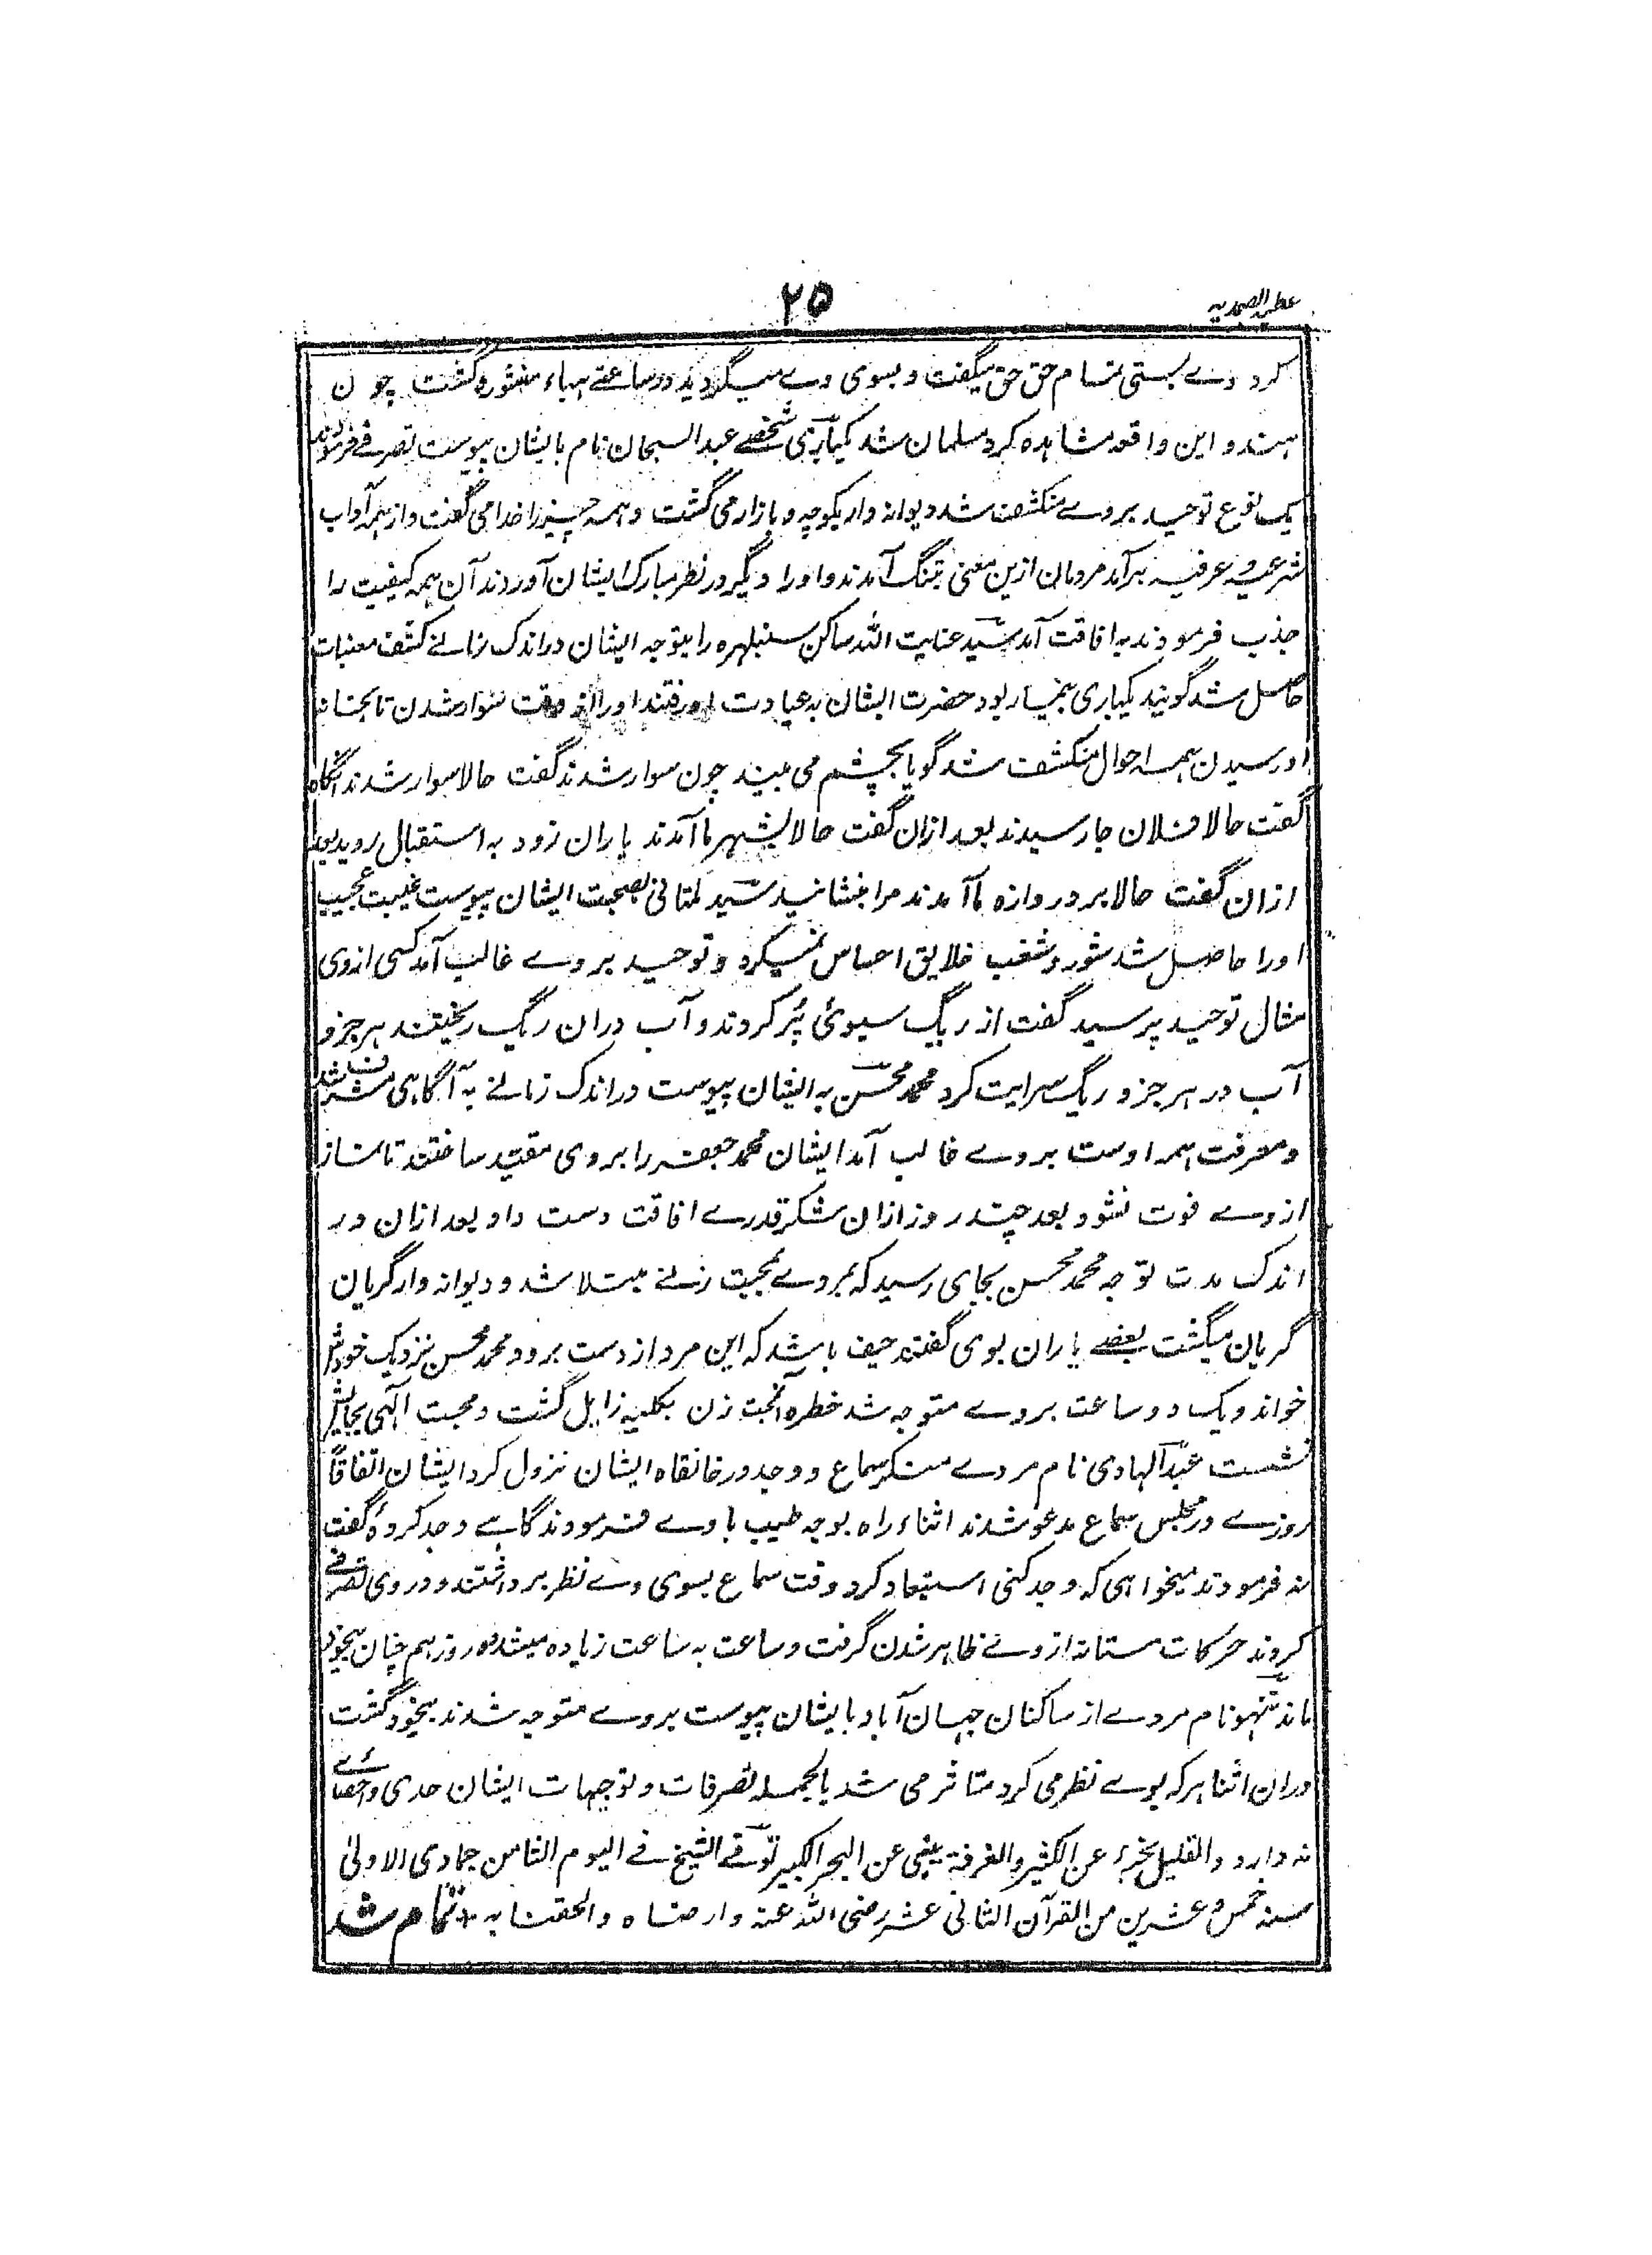 ۲۵
عطر الصمدیه
کرد وے بستی تمام حق حق میگفت و بسوی وے میگردید در ساعتے ہباء منثورہ گشت چون
ہندو این واقعہ مشاہدہ کرد مسلمان شد شخصے عبد السبحان نام بایشان پیوست تصرفے فرمودند
یک نوع توحید بر وے منکشف شد دیوانہ وار بکوچہ و بازار می گشت و ہمہ چیز را خدا می گفت و از ہمہ آداب
شرعیہ و عرفیہ برآمد مردمان ازین معنی بتنگ آمدند و او را دیگر در نظر مبارک ایشان آوردند آن ہمہ کیفیت را
جذب فرمودند بہ افاقت آمد سید عنایت اللہ ساکن سنبلہرہ را بتوجہ ایشان در اندک زمانے کشف مغیبات
حاصل شد گویند یکباری بیمار بود حضرت ایشان بہ عیادت او رفتند او را از وقت سوار شدن تا بخانہ
او رسیدن ہمہ احوال منکشف شد گویا بچشم می بیند چون سوار شدند گفت حالا سوار شدند آنگاہ
گفت حالا فلان جا رسیدند بعد ازان گفت حالا بشہر ما آمدند یاران زود بہ استقبال روید بعد
ازان گفت حالا بر دروازہ ما آمدند مرا بنشانید سید ملتانی بصحبت ایشان پیوست غیبت عجیب
او را حاصل شد شور و شغب خلایق احساس نمیکرد و توحید بر وے غالب آمد کسی از وی
مثال توحید پرسید گفت از ریگ سبوئی پُر کردند و آب دران ریگ ریختند ہر جزو
آب در ہر جزو ریگ سرایت کرد محمد محسن بہ ایشان پیوست در اندک زمانے بہ آگاہی مشرف شد
و معرفت ہمہ اوست بر وے غالب آمد ایشان محمد جعفر را بر وی مقید ساختند تا نماز
از وے فوت نشود بعد چند روز ازان سکر قدرے افاقت دست داد بعد ازان در
اندک مدت توجہ محمد محسن بجای رسید کہ مردے بمحبت زنے مبتلا شد و دیوانہ وار گریان
گریان میگشت بعضے یاران بوی گفتند حیف باشد کہ این مرد از دست برود محمد محسن نزدیک خودش
خواند و یک دو ساعت بر وے متوجہ شد خطرہ محبت زن بکلیہ زایل گشت و محبت الٰہی بجایش
نشست عبد الہادی نام مردے منکر سماع و وجد در خانقاہ ایشان نزول کرد ایشان اتفاقاً
روزے در مجلس سماع مدعو شدند اثناء راہ بوجہ طیب با وے فرمودند گاہے وجد کردہ گفت
نہ فرمودند میخواہی کہ وجد کنی استبعاد کرد وقت سماع بسوی وے نظر برداشتند و در وی تصرفے
کردند حرکات مستانہ از وے ظاہر شدن گرفت و ساعت بہ ساعت زیادہ میشد دو روز ہم چنان بیخود
ماند نتہو نام مردے از ساکنان جہان آباد بایشان پیوست بر وے متوجہ شدند بیخود گشت
دران اثنا ہر کہ بوے نظر می کرد متاثر می شد بالجملہ تصرفات و توجہات ایشان حدی و احصائے
نہ دارد والقلیل یخبر عن الکثیر والغرفة ینبی عن البحر الکبیر توفی الشیخ فے الیوم الثامن جمادی الاولیٰ
سنہ خمس و عشرین من القرآن الثانی عشر رضی اللہ عنہ وارضاہ والحقنا بہ + تمام شد